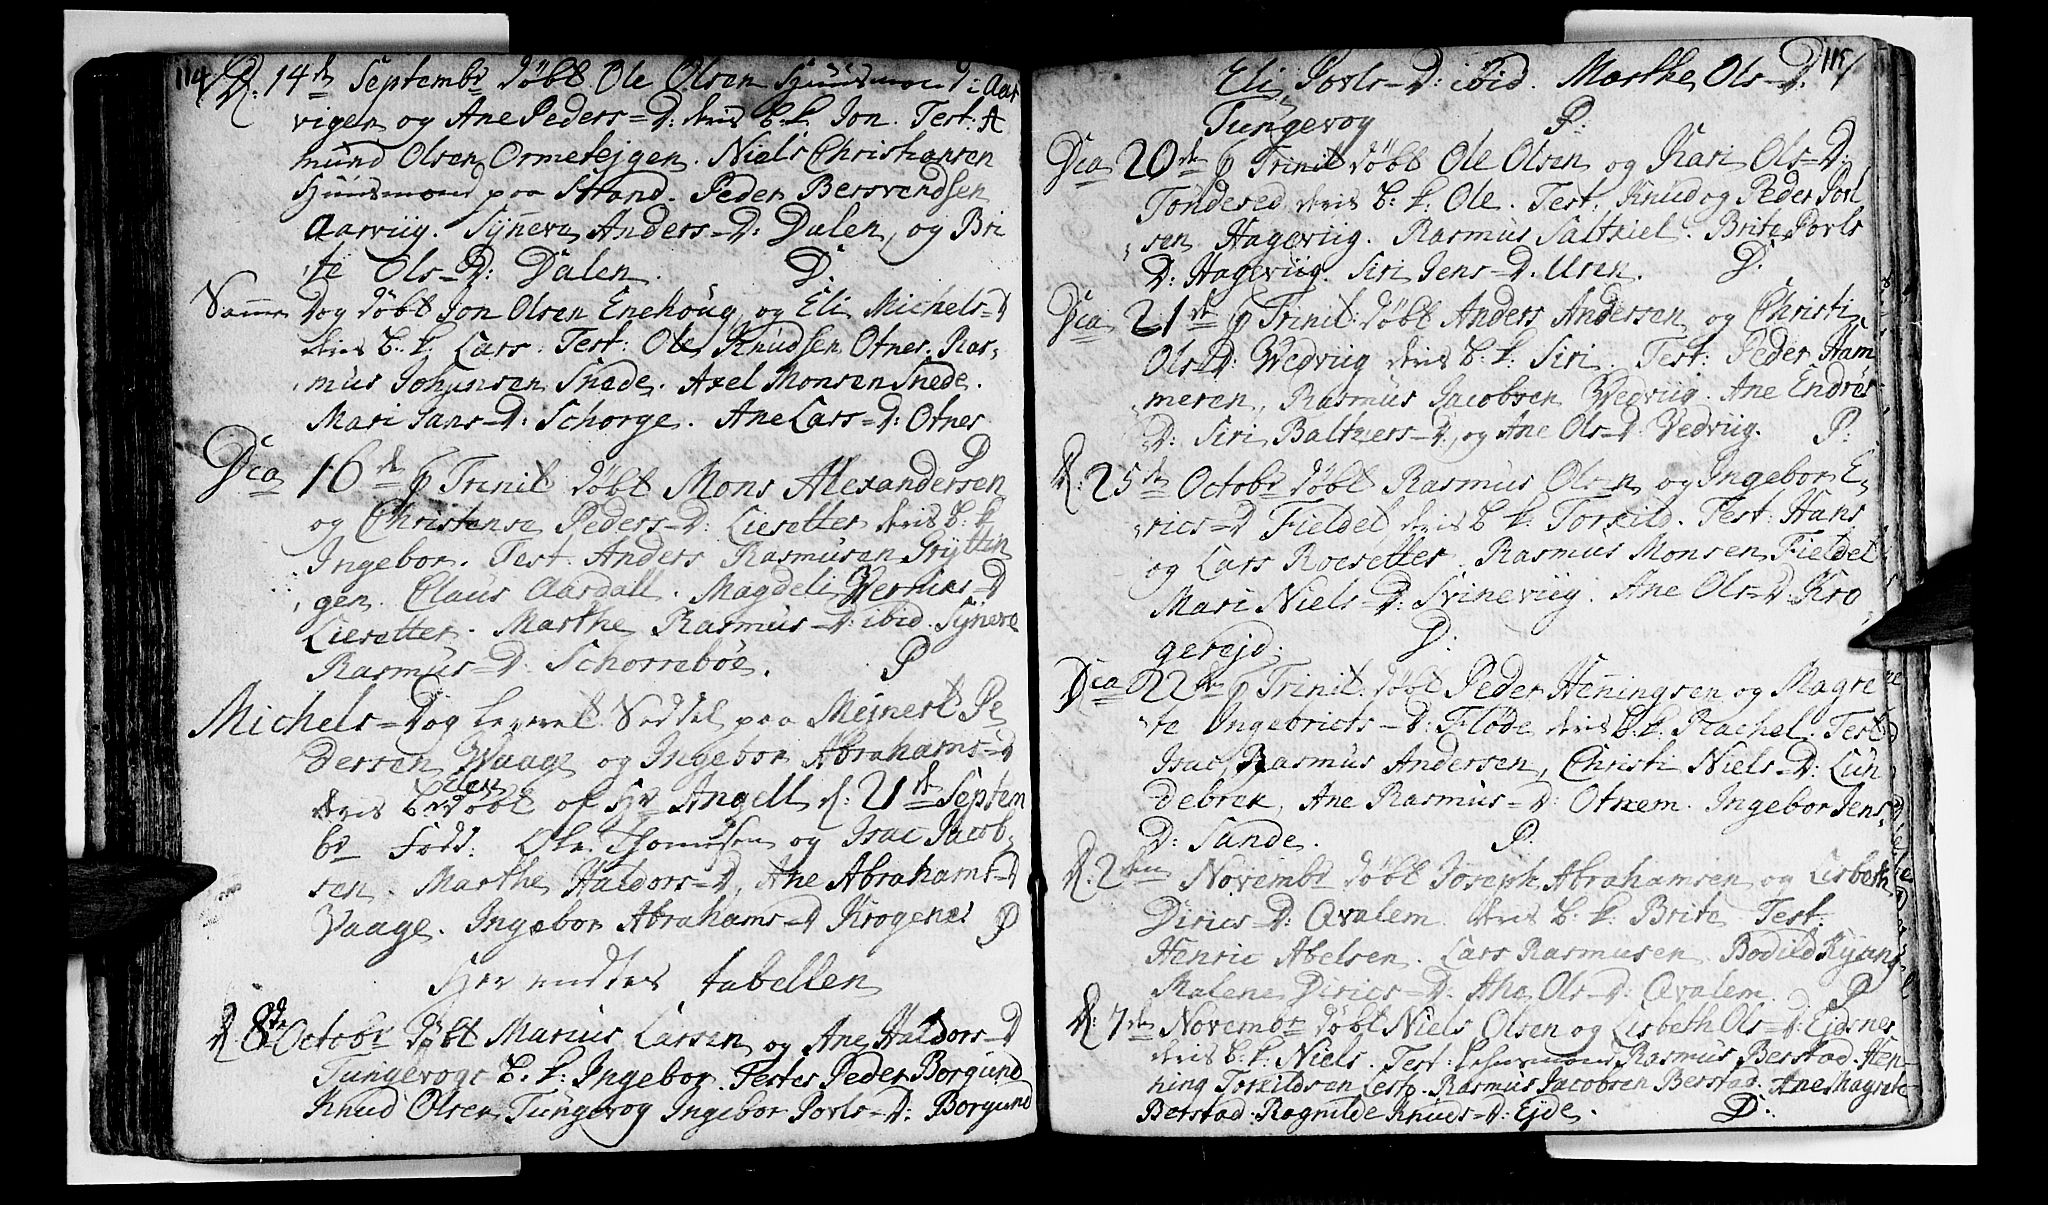 114
D: 14de Septembr døbt Ole Olsen Huusmand i Aar
vigen og Ane Peders=D: deris b. k. Jon. Test: A
mund Olsen Ormetejgen. Niels Christiansen
Huusmand paa Strand. Peder Bersvendsen
Aarviig. Syneva Anders=D: Dalen, og Bri
te Ols=D: Dalen. D.
Samme Dag døbt Jon Olsen Enehoug, og Eli Michels=D
deris b. k. Lars. Test: Ole Knudsen Otnes. Ras=
mus Johansen Snede. Axel Monsen Snede.
Mari Jans=D: Schorge. Ane Lars=D: Otnes
P
Dca 16de p Trinit døbt Mons Alexandersen
og Christense Peders=D: Lieretter deris b. k
Ingebor. Test Anders Rasmusen Gryttin
gen. Claus Aardall. Magdeli Werners=D
Lieretter. Marthe Rasmus=D: ibid. Synere
Rasmus=D: Schorrebøe. P
Michels=Dag leveret Seddel paa Mejnert Pe
dersen Waage og Ingebor Abrahams=D
Elen
deris b. døbt af Hr Angell d: 21de Septem
br Fadd: Ole Thomesen og Isac Jacob=
sen. Marthe Haldors=D, Ane Abrahams=D
Vaage. Ingebor Abrahams=D Krogenes P
Her endtes tabellen
D. 8de Octobr døbt Marius Larsen og Ane Haldors=D
Tungevogs b. k: Ingebor. Testes Peder Borgund
Knud Olsen Tungevog Ingebor Povls=D: Borgund
115
Eli Povls=D: ibid. Marthe Ols=D:
Tungevog P:
Dca 20de p Trinit døbt Ole Olsen og Kari Ols=D:
Tøndered deris b: k. Ole. Test: Knud og Peder Povl
sen Hageviig. Rasmus Saltkiel. Brite Povls
D: Hageviig. Siri Jens=D. Uren. D.
Dca 21de p Trinit: døbt Anders Andersen og Christi
Ols=D: Wedviig deris b. k: Siri. Test: Peder Ham
meren, Rasmus Jacobsen Wedviig. Ane Endres
D: Siri Baltzers=D, og Ane Ols=D: Vedviig. P:
D: 25de Octobr døbt Rasmus Olsen og Ingebor E
rics=D Fieldet deris b k: Torkild. Test: Hans
og Lars Roesetter. Rasmus Monsen Fieldet
Mari Niels=D: Svineviig. Ane Ols=D Kro
gerejd. D:
Dca 22de p Trinit: døbt Peder Henningsen og Magre
te Ingebricts=D: Fløde deris b. k. Rachel. Test
Isac, Rasmus Andersen, Christi Niels=D: Lun
debrek, Ane Rasmus=D: Otnem. Ingebor Jens
D: Sande. P:
D. 2den Novembr døbt Joseph Abrahamsen og Lisbeth
Dirics=D: Qvalem deris b. k. Brite. Test:
Henric Abelsen. Lars Rasmusen. Bodild
Malene Dirics=D: Ane Ols=D: Qvalem. P
D: 7de Novembr døbt Niels Olsen og Lisbeth Ols=D: Ejdsnes
deris b: k. Niels. Test: Rasmus Berstad. Hen
ning Torkildsen Lesto. Rasmus Jacobsen Berstad. Ane Magrete
Berstad. Ragnilde Knuds=D: Ejde. D: